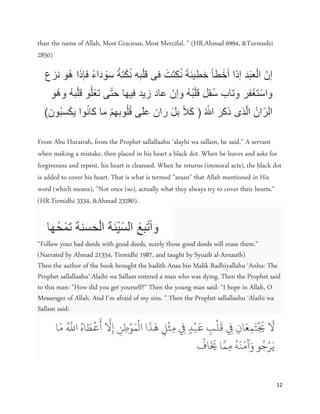 than the name of Allah, Most Gracious, Most Merciful. " (HR.Ahmad 6994, &Turmudzi
2850)
إِنَّ الْعَبْدَ إِذَا أَخْطَأَ خَطِيئَةً نُكِتَتْ فِى قَلْبِهِ نُكْتَةٌ سَوْدَاءُ فَإِذَا هُوَ نَزَعَ
وَاسْتَغْفَرَ وَتَابَ سُقِلَ قَلْبُهُ وَإِنْ عَادَ زِيدَ فِيهَا حَتَّى تَعْلُوَ قَلْبَهُ وَهُوَ
الرَّانُ الَّذِى ذَكَرَ اللهُ ( كَلاَّ بَلْ رَانَ عَلَى قُلُوبِهِمْ مَا كَانُوا يَكْسِبُونَ)
From Abu Hurairah, from the Prophet sallallaahu 'alayhi wa sallam, he said," A servant
when making a mistake, then placed in his heart a black dot. When he leaves and asks for
forgiveness and repent, his heart is cleansed. When he returns (immoral acts), the black dot
is added to cover his heart. That is what is termed "araan" that Allah mentioned in His
word (which means), "Not once (so), actually what they always try to cover their hearts."
(HR.Tirmidhi 3334, &Ahmad 23280).
وَأَتْبِعْ السَّيِّئَةَ الْحَسَنَةَ تَمْحُهَا
"Follow your bad deeds with good deeds, surely those good deeds will erase them."
(Narrated by Ahmad 21354, Tirmidhi 1987, and taught by Syuaib al-Arnauth)
Then the author of the book brought the hadith Anas bin Malik Radhiyallahu 'Anhu: The
Prophet sallallaahu' Alaihi wa Sallam entered a man who was dying. Then the Prophet said
to this man: "How did you get yourself?" Then the young man said: "I hope in Allah, O
Messenger of Allah. And I'm afraid of my sins. " Then the Prophet sallallaahu 'Alaihi wa
Sallam said:
لَا يَجْتَمِعَانِ فِي قَلْبِ عَبْدٍ فِي مِثْلِ هَذَا الْمَوْطِنِ إِلَّا أَعْطَاهُ اللَّهُ مَا
يَرْجُو وَآمَنَهُ مِمَّا يَخَافُ
12